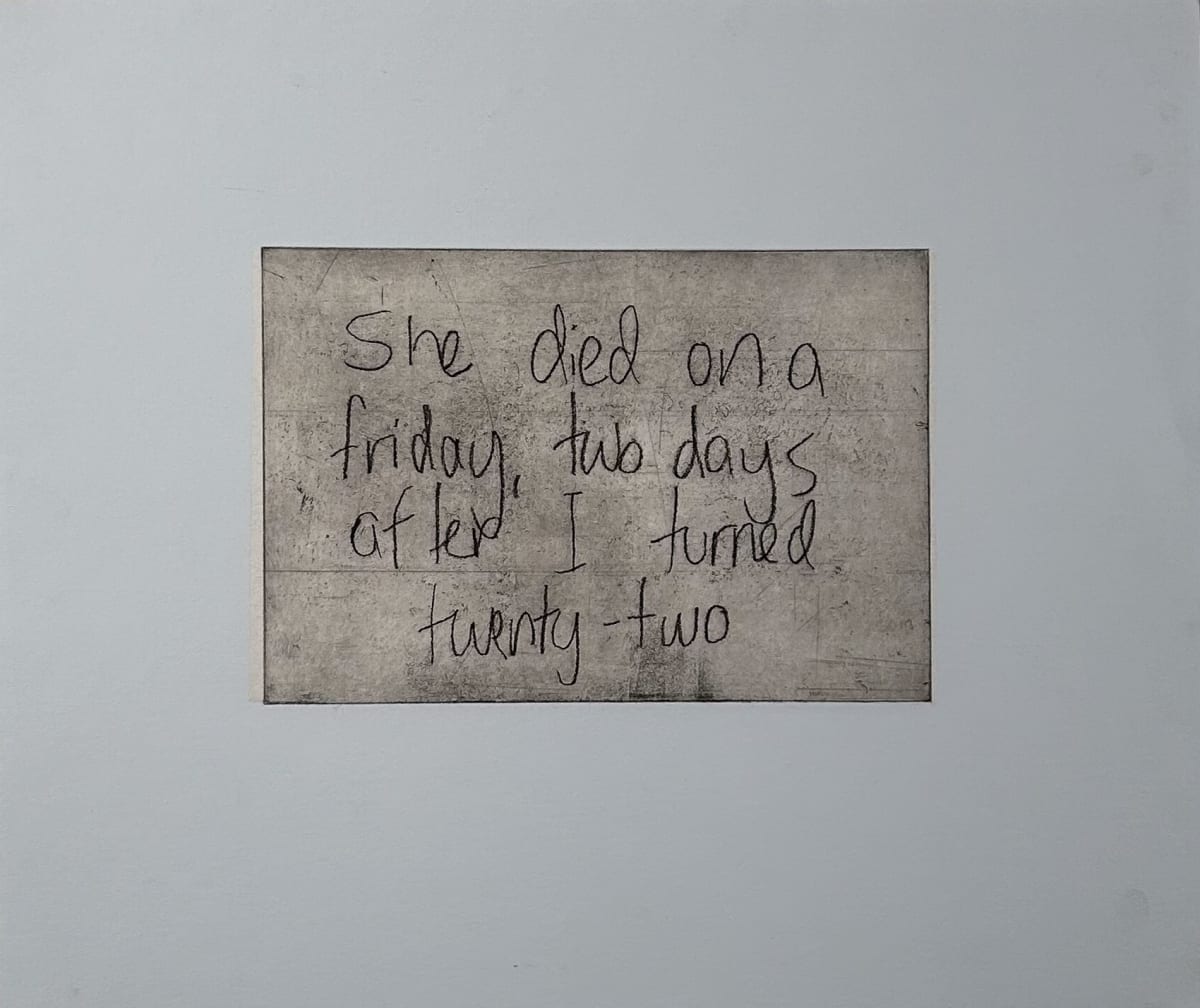 She died on a
friday, two days
after I turned
twenty-two